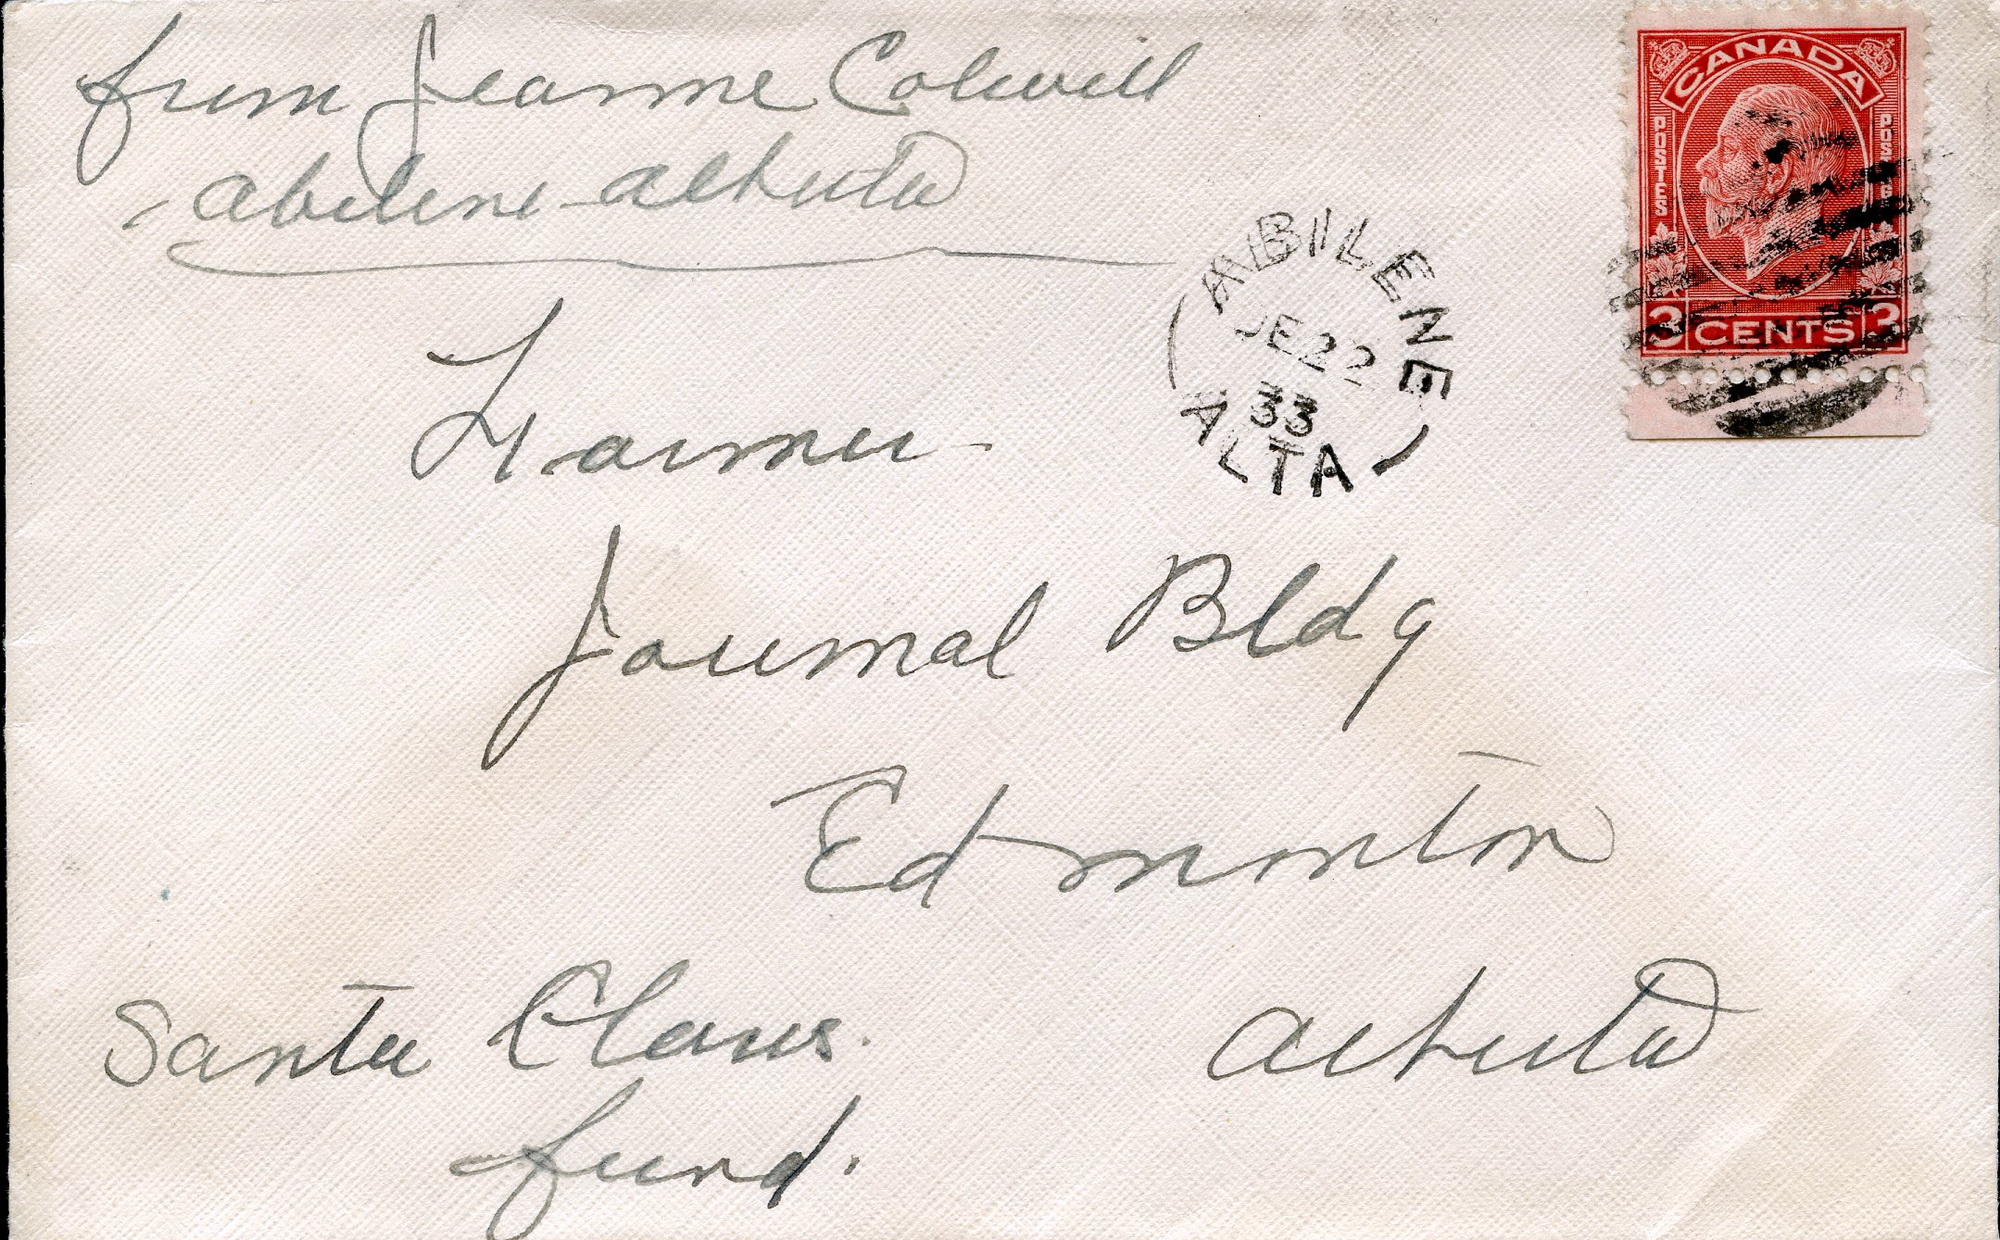 from Jeanne Colwill
Abilene Alberta
CANADA
POSTES
POSTAGE
3 CENTS 3
ABILENE
JE 22
33
ALTA
Journal Bldg
Edmonton
Alberta
Santa Claus.
fund.